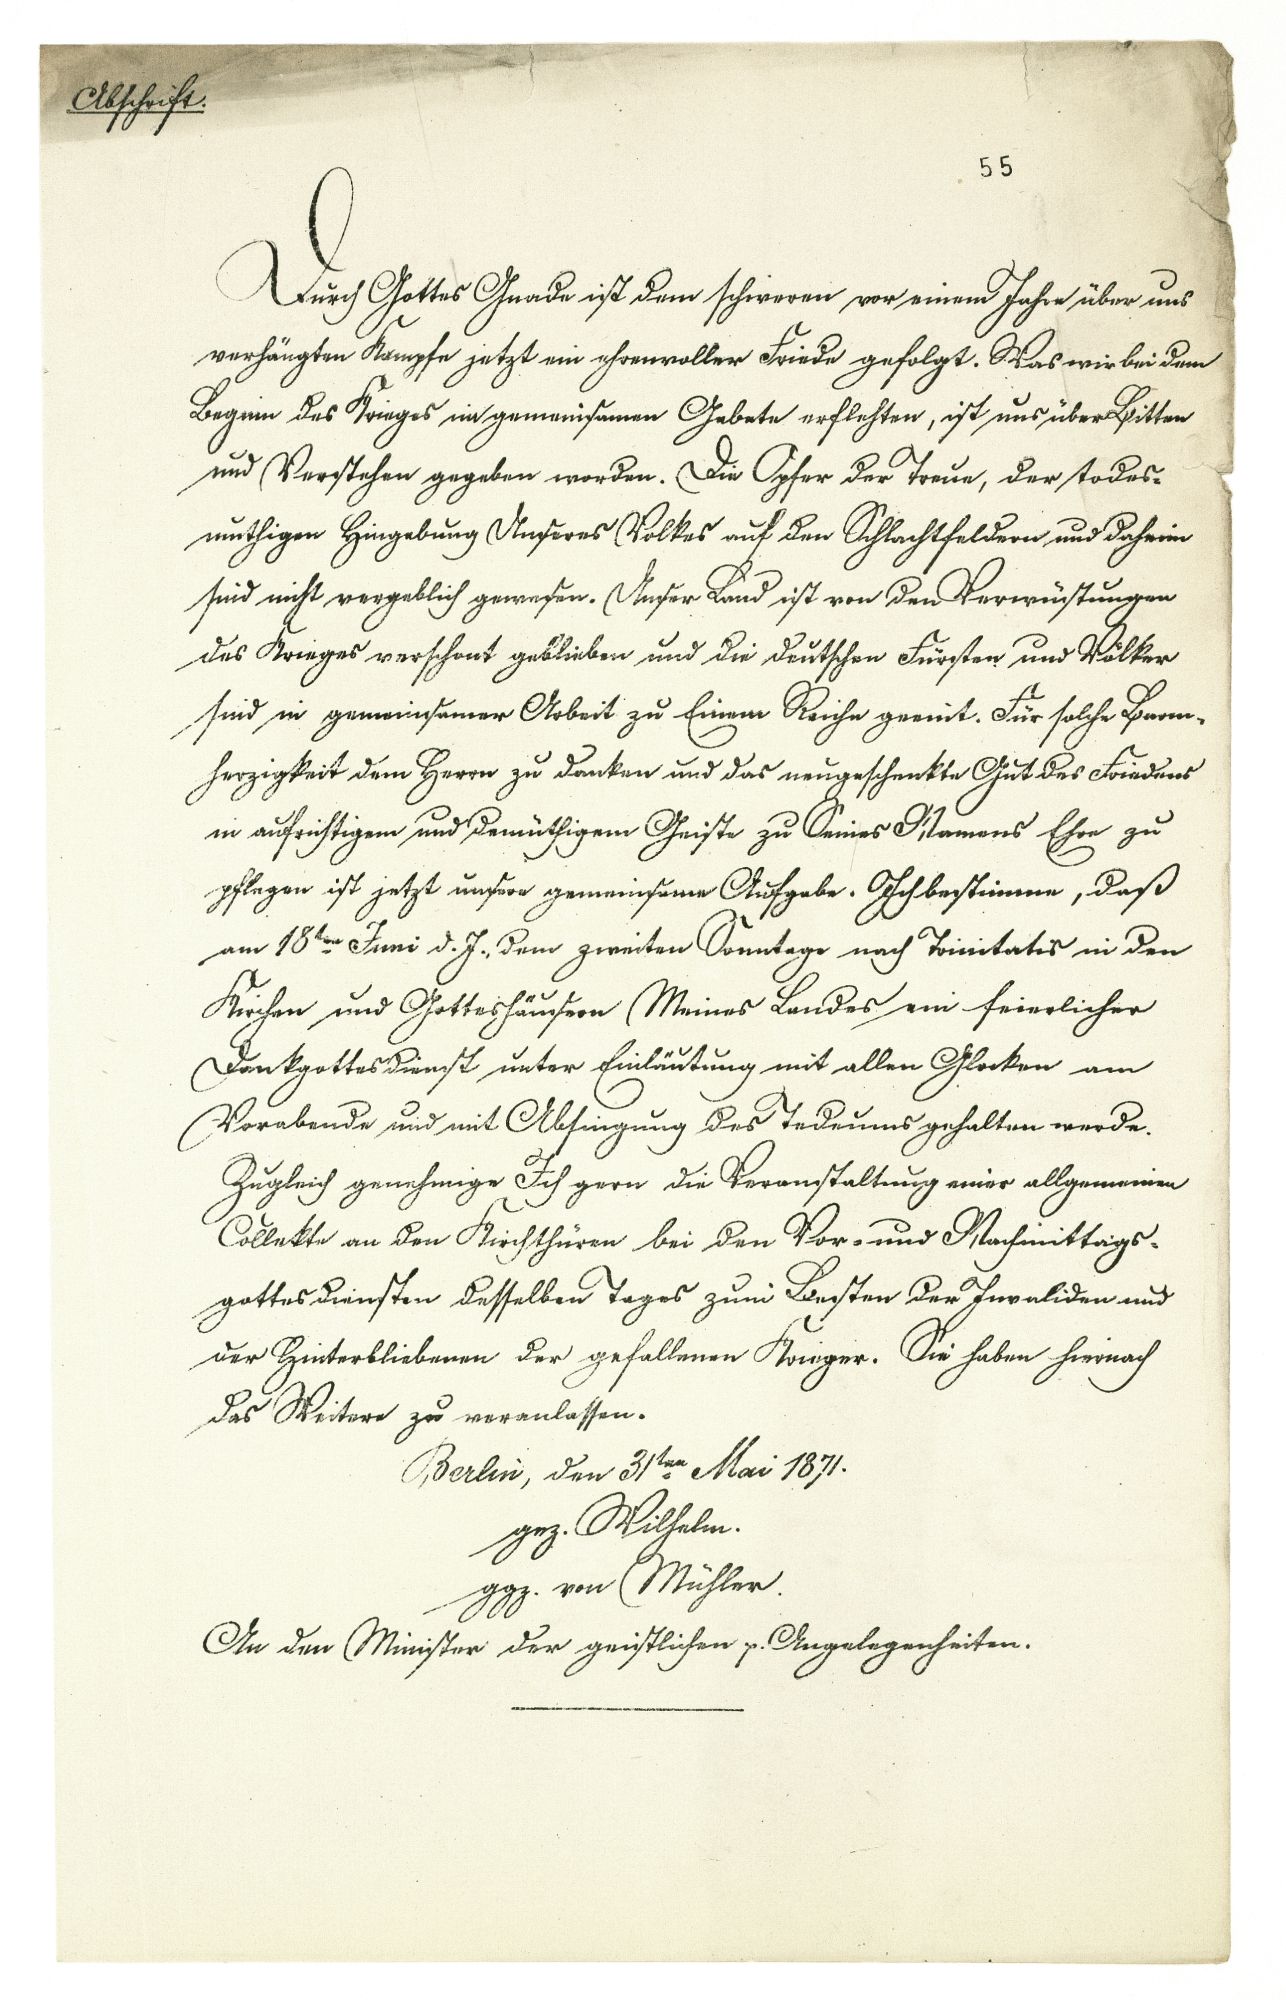 Abschrift.
55
Durch Gottes Gnade ist dem schweren vor einem Jahre über uns
verhängten Kampfe jetzt ein ehrenvoller Friede gefolgt. Was wir bei dem
Beginn des Krieges im gemeinsamen Gebete erflehten, ist uns über Bitten
und Verstehen gegeben worden. Die Opfer der Treue, der todes-
muthigen Hingebung Unseres Volkes auf den Schlachtfeldern und daheim
sind nicht vergeblich gewesen. Unser Land ist von den Verwüstungen
des Krieges verschont geblieben und die deutschen Fürsten und Völker
sind in gemeinsamer Arbeit zu Einem Reiche geeint. Für solche Barm-
herzigkeit dem Herrn zu danken und das neugeschenkte Gut des Friedens
in aufrichtigem und demüthigem Geiste zu Seines Namens Ehre zu
pflegen ist jetzt unsere gemeinsame Aufgabe. Ich bestimme, daß
am 18ten Juni d. J., dem zweiten Sonntage nach Trinitatis in den
Kirchen und Gotteshäusern Meines Landes ein feierlicher
Dankgottesdienst unter Einläutung mit allen Glocken am
Vorabende und mit Absingung des Tedeums gehalten werde.
Zugleich genehmige Ich gern die Veranstaltung einer allgemeinen
Collekte an den Kirchthüren bei den Vor- und Nachmittags-
gottesdiensten desselben Tages zum Besten der Invaliden und
der Hinterbliebenen der gefallenen Krieger. Sie haben hiernach
das Weitere zu veranlassen.
Berlin, den 31ten Mai 1871.
gez. Wilhelm.
ggz. von Mühler.
An den Minister der geistlichen p. Angelegenheiten.